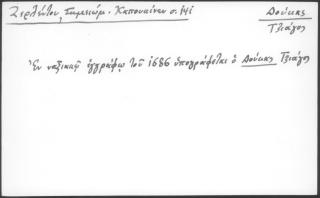 Ζερλέντου, Σημειώμ. Καπουκίνων σ. ιηί
Δούκας
Τζιάγος
Ἐν ναξιακῷ ἐγγράφῳ τοῦ 1686 ὑπογράφεται ὁ Δούκας Τζιάγος